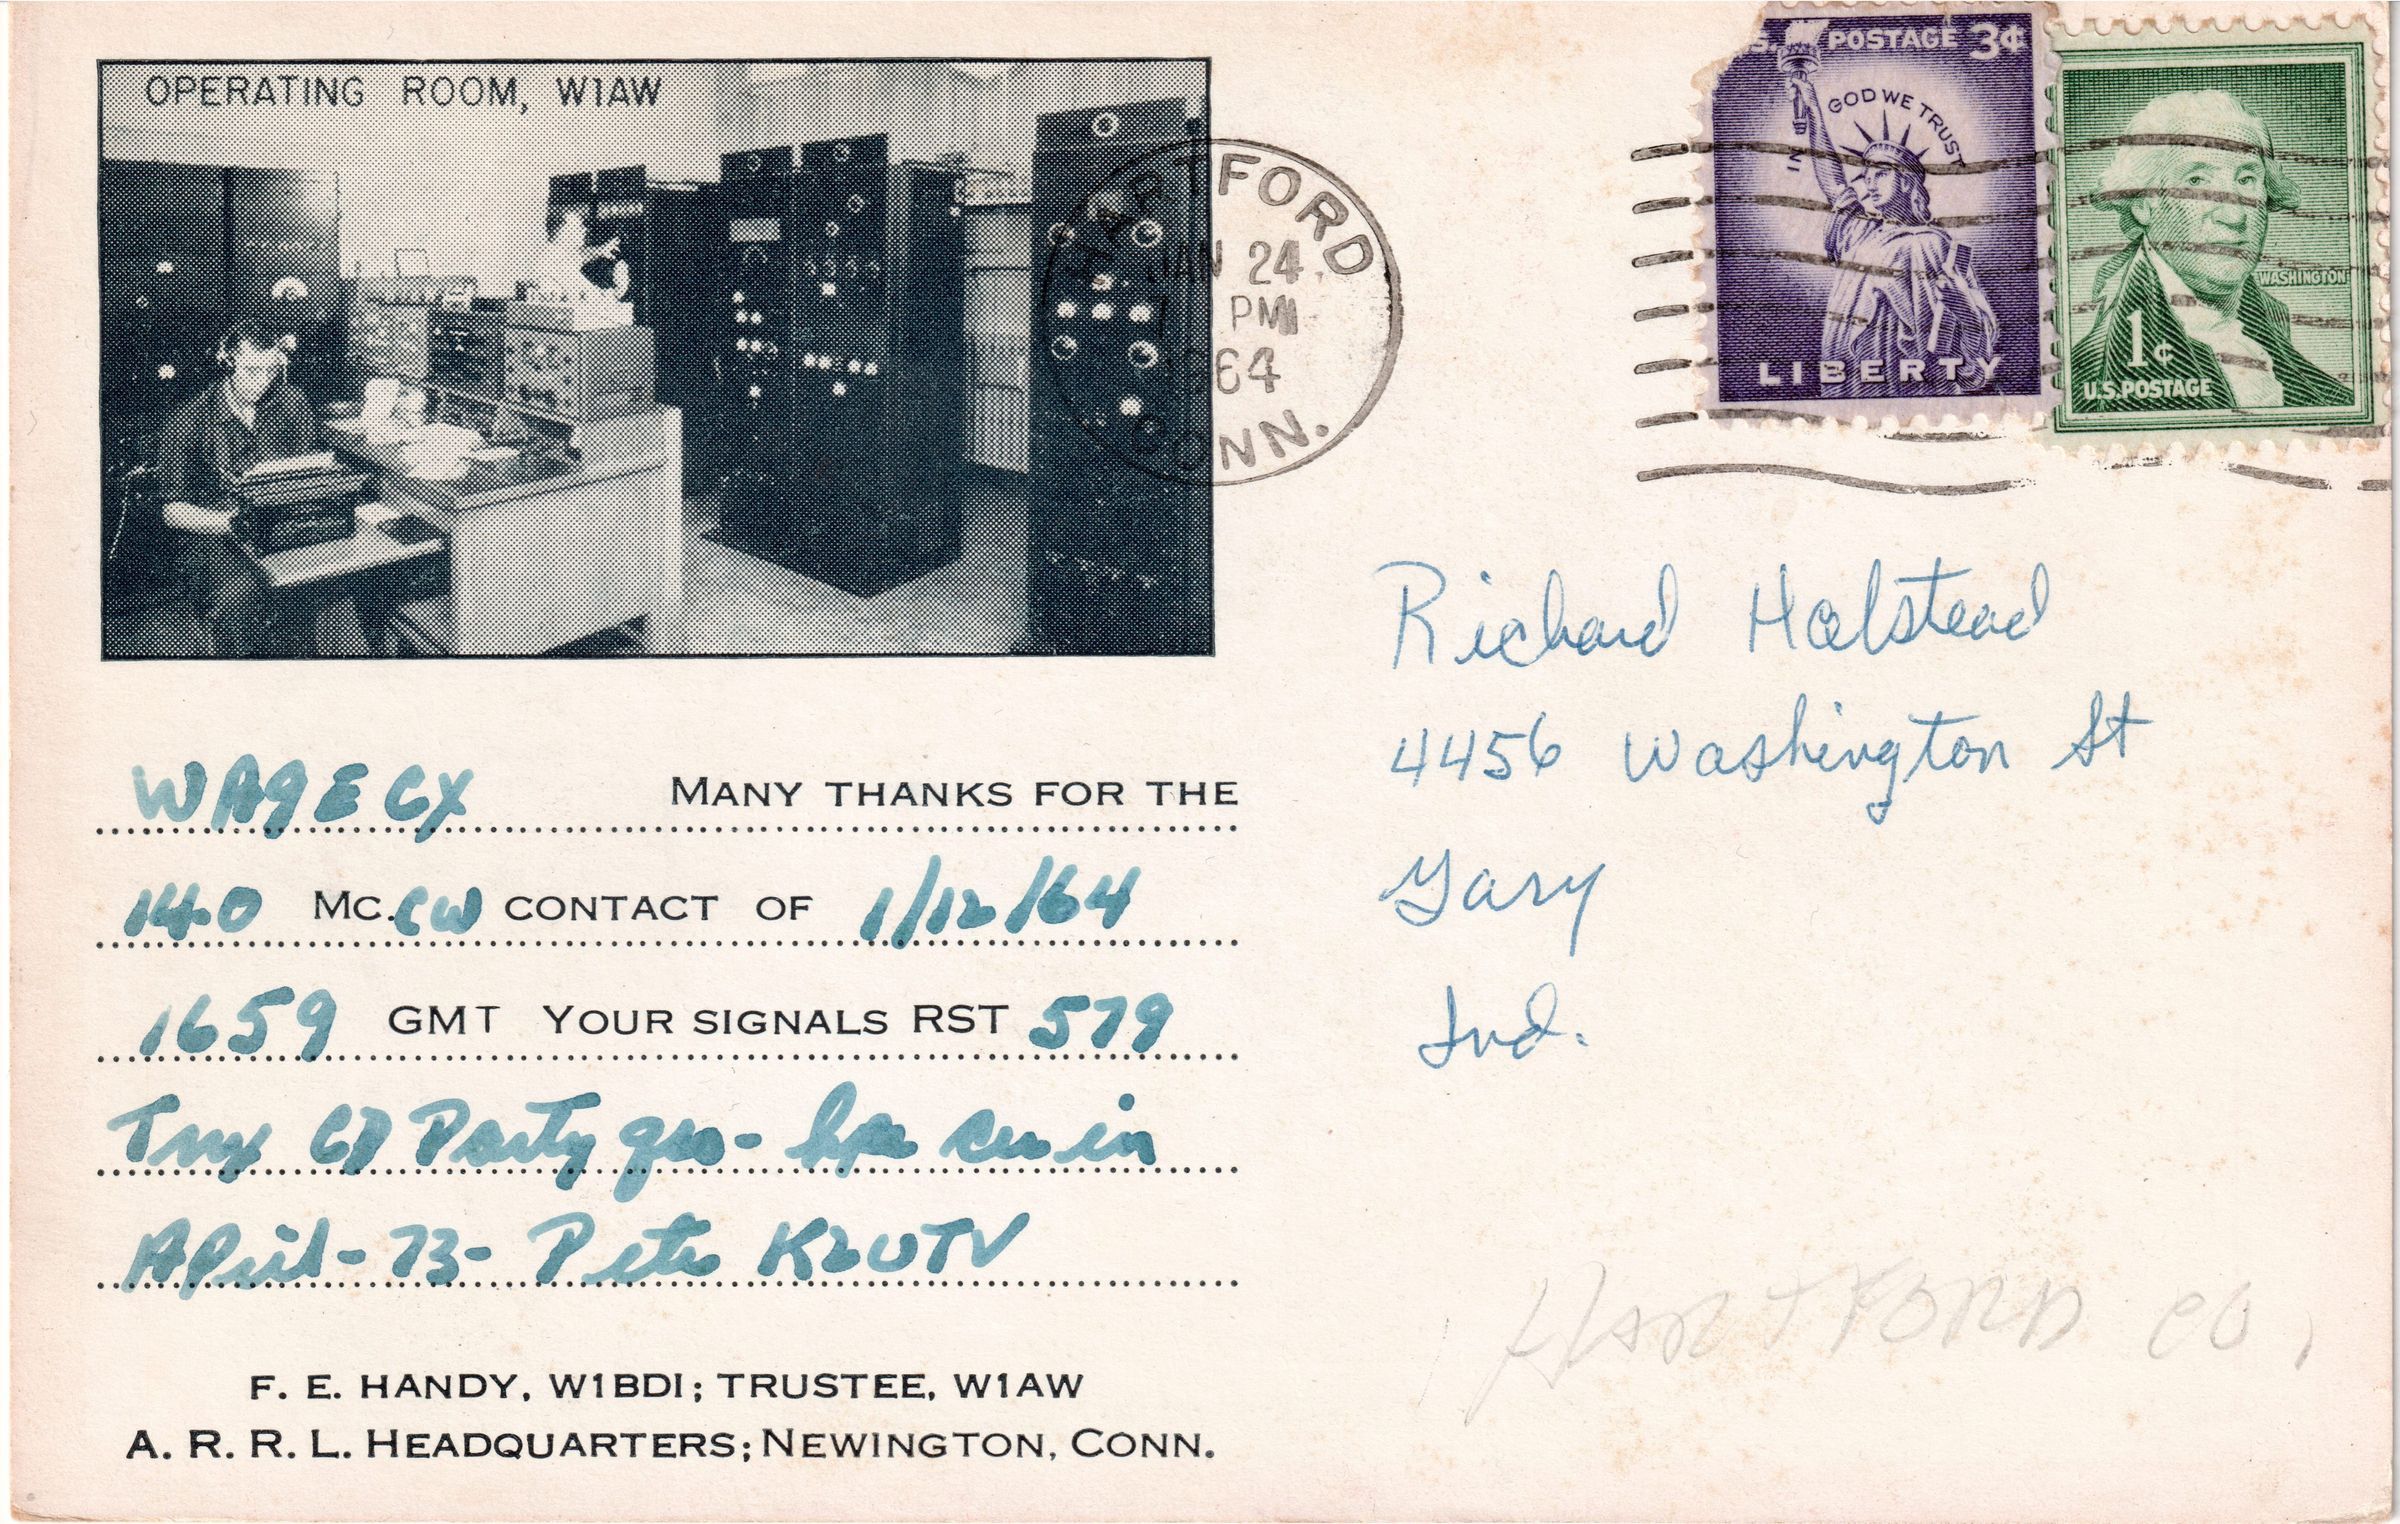 OPERATING ROOM, W1AW
HARTFORD
JAN 24
PM
1964
CONN.
U.S. POSTAGE 3¢
IN GOD WE TRUST
LIBERTY
WASHINGTON
1¢
U.S. POSTAGE
WA9ECX MANY THANKS FOR THE
14.0 MC. CW CONTACT OF 1/12/64
1659 GMT YOUR SIGNALS RST 579
Tnx CD Party qso - hpe cu in
April - 73 - Pete K2UTV
F. E. HANDY, W1BDI; TRUSTEE, W1AW
A. R. R. L. HEADQUARTERS; NEWINGTON, CONN.
Richard Halstead
4456 Washington St
Gary
Ind.
HARTFORD CO,